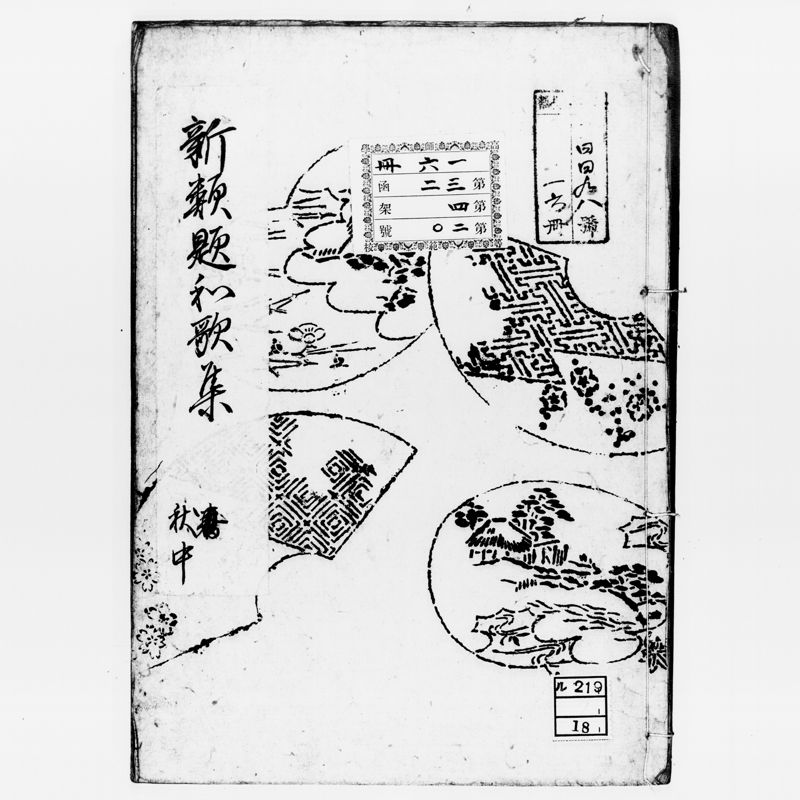 新類題和歌集
秋中
四四九八號
一六冊
一六冊
第三二函
第四架
第二〇號
ル 219
18